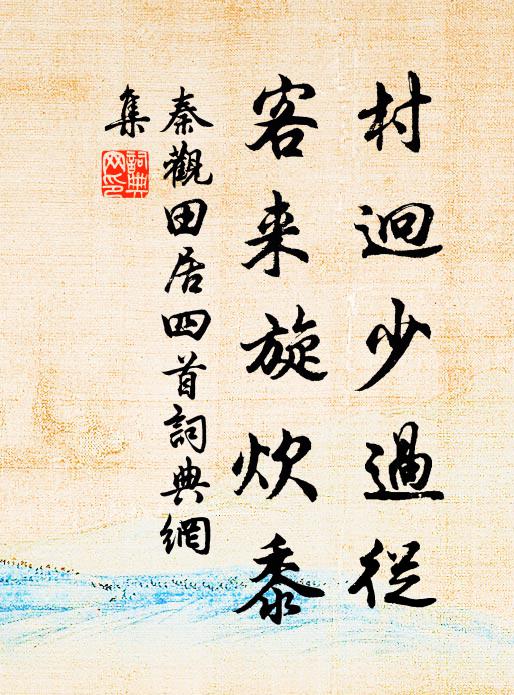 村迥少過從
客来旋炊黍
秦觀田居四首詞典網
集
詞典
网印